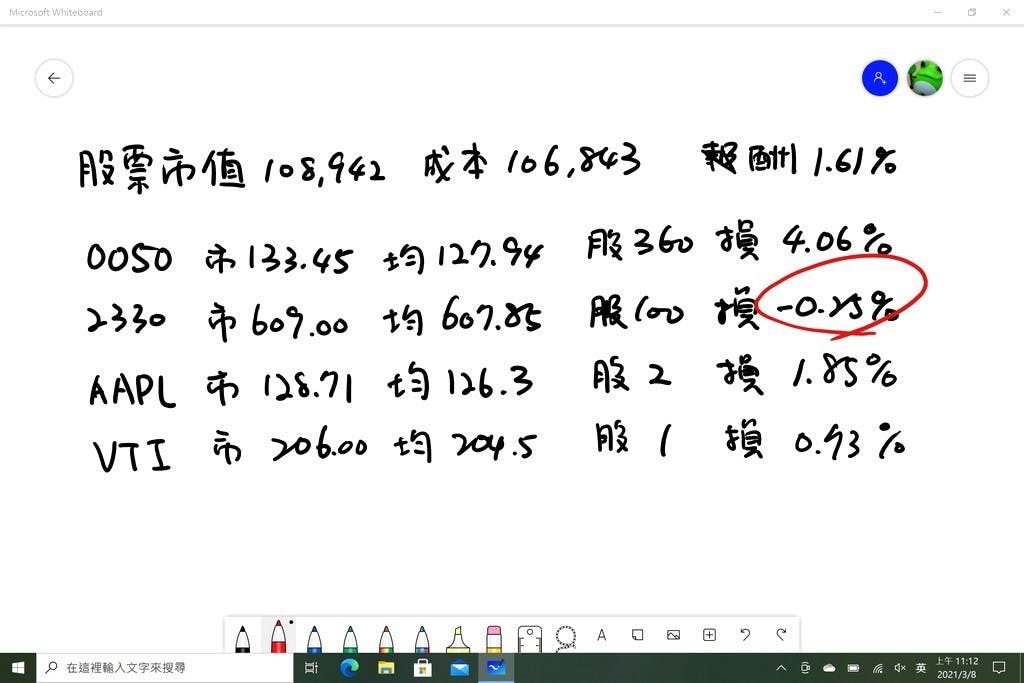 Microsoft Whiteboard
股票市值 108,942 成本 106,843 報酬 1.61%
0050 市 133.45 均 127.94 股 360 損 4.06%
2330 市 609.00 均 607.85 股 100 損 -0.25%
AAPL 市 128.71 均 126.3 股 2 損 1.85%
VTI 市 206.00 均 204.5 股 1 損 0.73%
A
在這裡輸入文字來搜尋
英
上午 11:12
2021/3/8